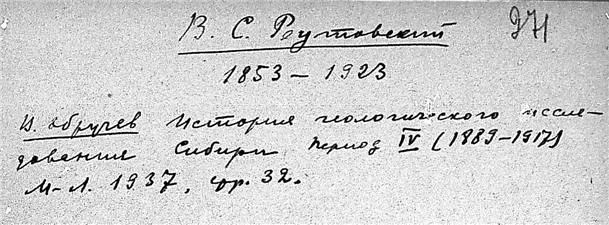 В. С. Реутовский
971
1853 – 1923
В. Обручев История геологического иссле-
дования Сибири Период IV (1889–1917)
М-Л. 1937, стр. 32.